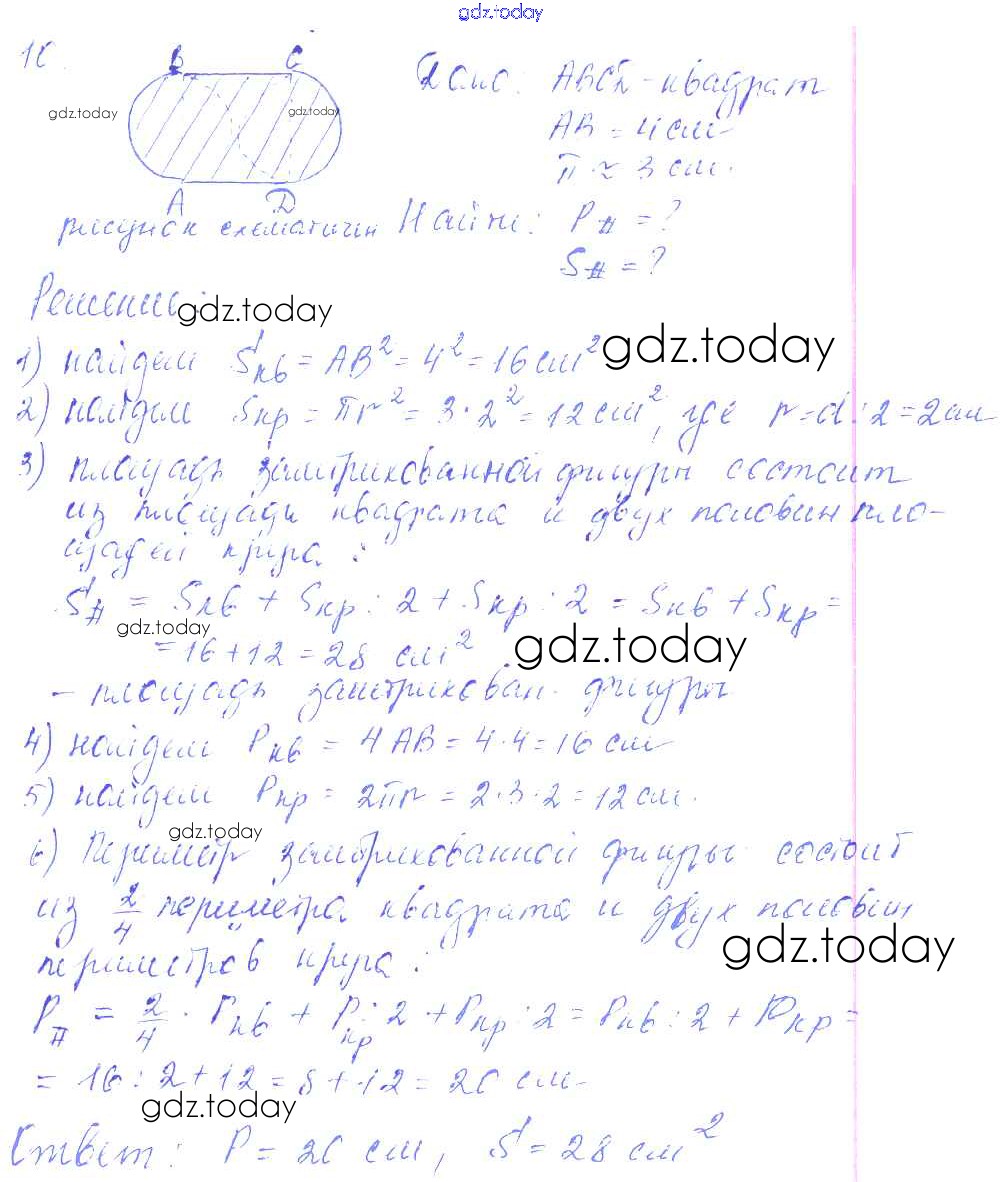 gdz.today
10.
B C
Дано: ABCD - квадрат
gdz.today gdz.today
AB = 4 см
π ≈ 3 см.
A D
рисунок схематичен Найти: P# = ?
S# = ?
Решение:
gdz.today
1) найдем Sкв = AB² = 4² = 16 см²
gdz.today
2) найдем Sкр = πr² = 3·2² = 12 см², где r = d : 2 = 2 см
3) площадь заштрихованной фигуры состоит
из площади квадрата и двух половин пло-
щадей круга:
S# = Sкв + Sкр : 2 + Sкр : 2 = Sкв + Sкр =
gdz.today
= 16 + 12 = 28 см²
gdz.today
- площадь заштрихован. фигуры
4) найдем Pкв = 4AB = 4·4 = 16 см
5) найдем Pкр = 2πr = 2·3·2 = 12 см.
gdz.today
6) Периметр заштрихованной фигуры состоит
из 2/4 периметра квадрата и двух половин
gdz.today
периметров круга:
P# = 2/4 · Pкв + Pкр : 2 + Pкр : 2 = Pкв : 2 + Pкр =
= 16 : 2 + 12 = 8 + 12 = 20 см.
gdz.today
Ответ: P = 20 см, S = 28 см²